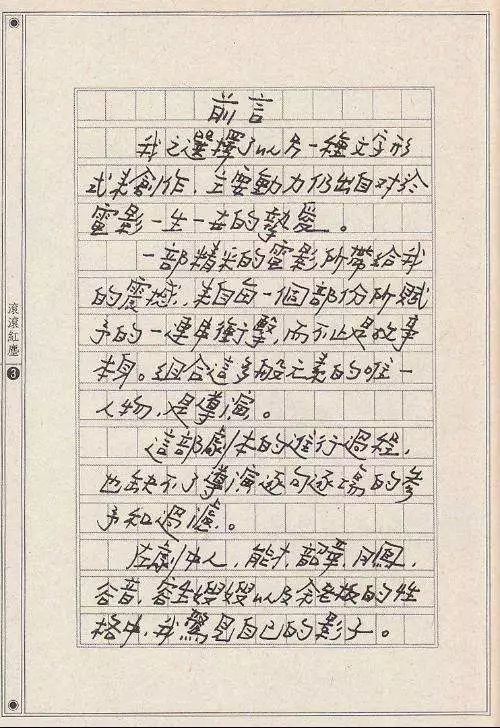 前言
我之選擇了以另一種文字形
式來創作，主要動力仍出自對於
電影一生一世的摯愛。
一部精采的電影所帶給我
的震撼，來自每一個部份所賦
予的一連串衝擊，而不止是故事
本身。組合這多般元素的唯一
人物，是導演。
這部劇本的進行過程，
也缺不了導演逐句逐場的參
予和過濾。
在劇中人，能才，韶華，月鳳，
谷音，容生嫂嫂以及余老板的性
格中，我驚見自己的影子。
滾滾紅塵
3